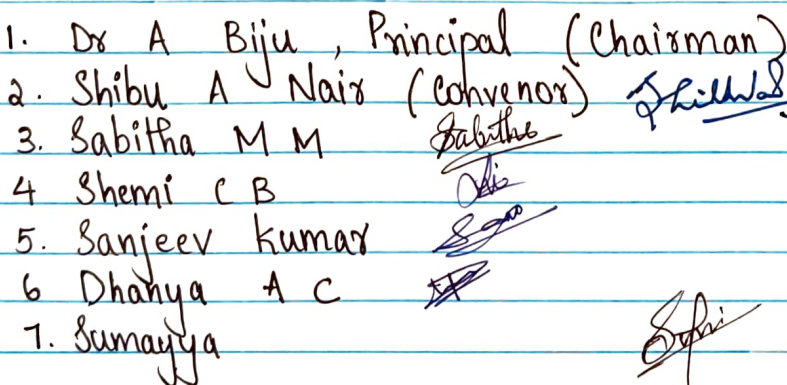 1. Dr A Biju, Principal (Chairman)
2. Shibu A Nair (Convenor)
3. Sabitha M M Sabitha
4 Shemi C B
5. Sanjeev kumar
6 Dhanya A C
7. Sumayya